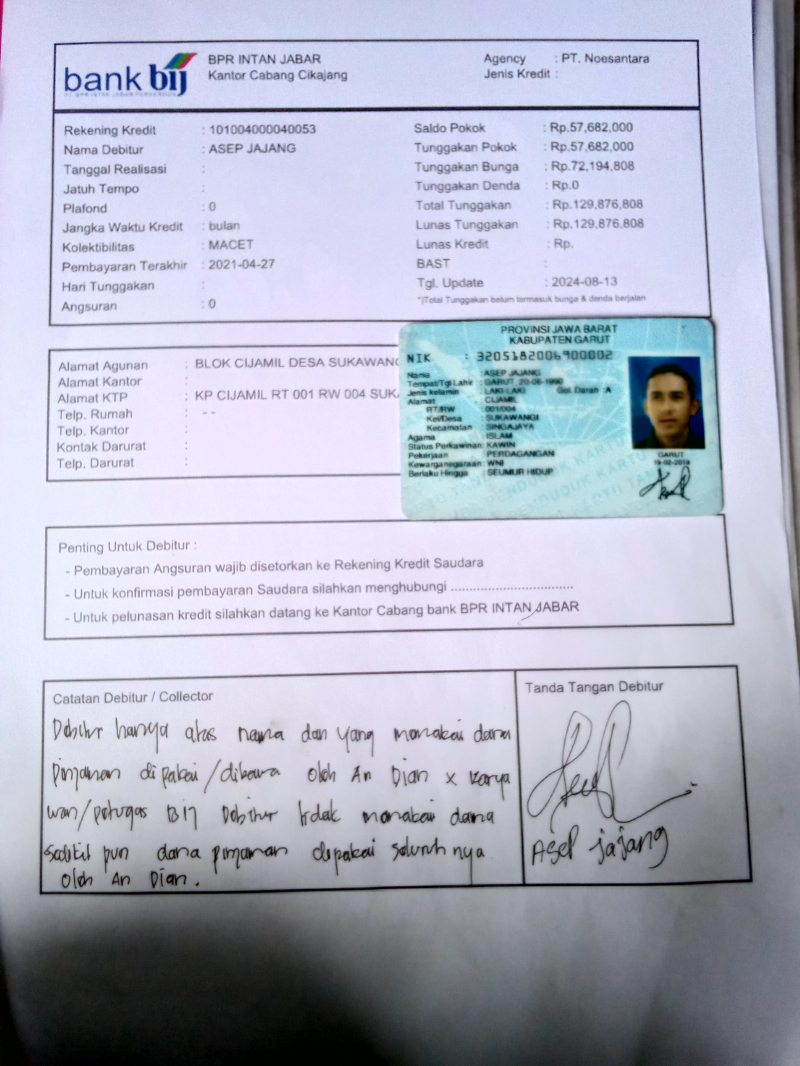 bank bij
BPR INTAN JABAR
Kantor Cabang Cikajang
Agency : PT. Noesantara
Jenis Kredit :
Rekening Kredit : 101004000040053
Nama Debitur : ASEP JAJANG
Tanggal Realisasi :
Jatuh Tempo :
Plafond : 0
Jangka Waktu Kredit : bulan
Kolektibilitas : MACET
Pembayaran Terakhir : 2021-04-27
Hari Tunggakan :
Angsuran : 0
Saldo Pokok : Rp.57,682,000
Tunggakan Pokok : Rp.57,682,000
Tunggakan Bunga : Rp.72,194,808
Tunggakan Denda : Rp.0
Total Tunggakan : Rp.129,876,808
Lunas Tunggakan : Rp.129,876,808
Lunas Kredit : Rp.
BAST :
Tgl. Update : 2024-08-13
*)Total Tunggakan belum termasuk bunga & denda berjalan
Alamat Agunan : BLOK CIJAMIL DESA SUKAWANG
Alamat Kantor :
Alamat KTP : KP CIJAMIL RT 001 RW 004 SUKA
Telp. Rumah : - -
Telp. Kantor :
Kontak Darurat :
Telp. Darurat :
PROVINSI JAWA BARAT
KABUPATEN GARUT
NIK : 3205182006900002
Nama : ASEP JAJANG
Tempat/Tgl Lahir : GARUT, 20-06-1990
Jenis kelamin : LAKI-LAKI Gol. Darah : A
Alamat : CIJAMIL
RT/RW : 001/004
Kel/Desa : SUKAWANGI
Kecamatan : SINGAJAYA
Agama : ISLAM
Status Perkawinan: KAWIN
Pekerjaan : PERDAGANGAN
Kewarganegaraan: WNI
Berlaku Hingga : SEUMUR HIDUP
GARUT
Penting Untuk Debitur :
- Pembayaran Angsuran wajib disetorkan ke Rekening Kredit Saudara
- Untuk konfirmasi pembayaran Saudara silahkan menghubungi ................................
- Untuk pelunasan kredit silahkan datang ke Kantor Cabang bank BPR INTAN JABAR
Catatan Debitur / Collector
Debitur hanya atas nama dan yang memakai dana
Pinjaman di pakai/dibawa oleh An Dian x karya
wan/petugas BIJ Debitur tidak memakai dana
sedikit pun dana pinjaman dipakai seluruhnya
oleh An Dian.
Tanda Tangan Debitur
Asep jajang